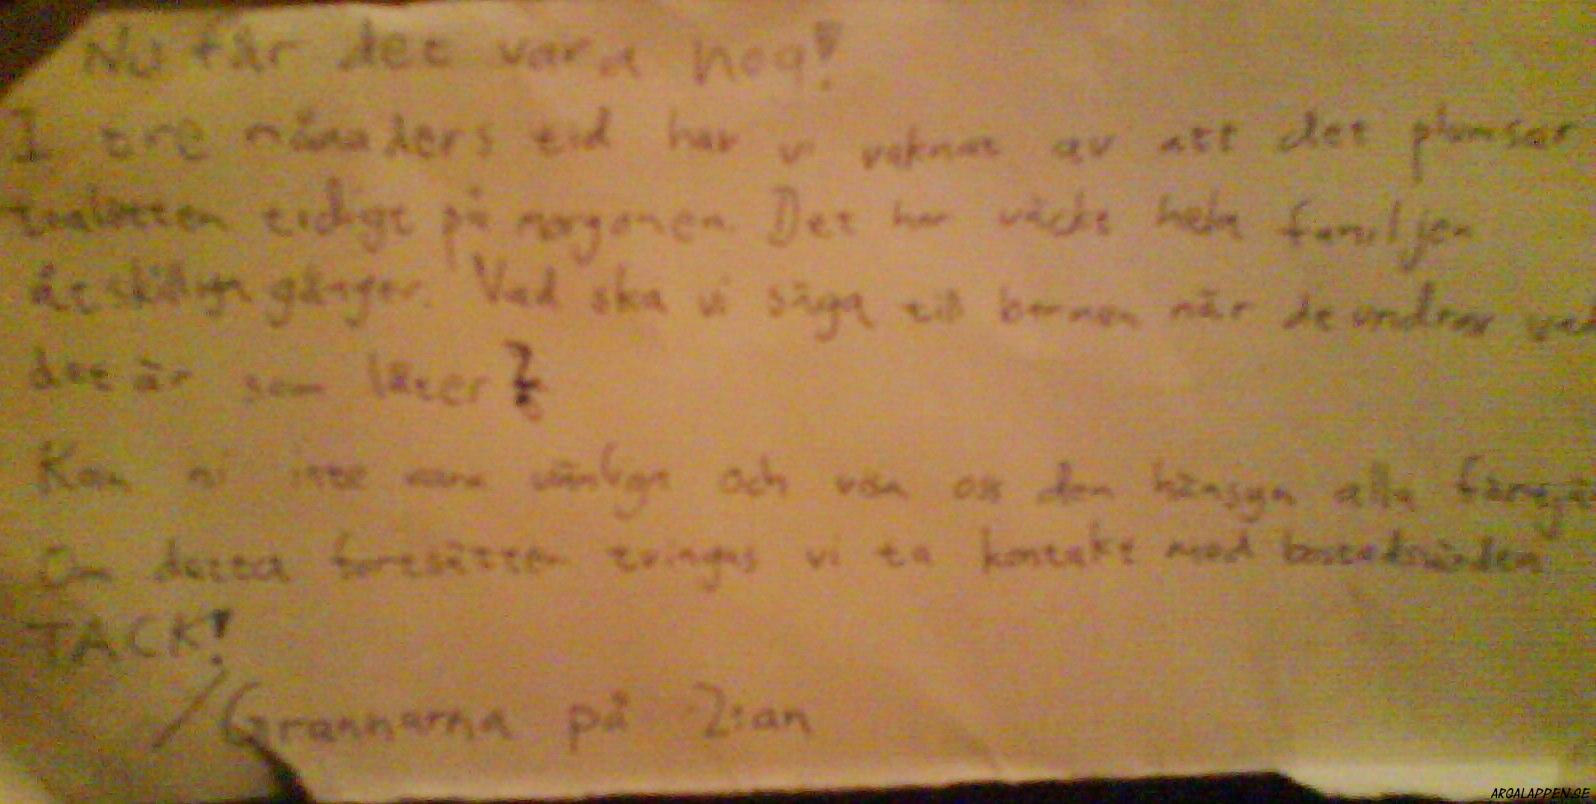 Nu får det vara nog!
I tre månaders tid har vi vaknat av att det plumsar
toaletten tidigt på morgonen. Det har väckt hela familjen
åtskilliga gånger. Vad ska vi säga till barnen när de undrar vad
det är som låter?
Kan ni inte vara vänliga och visa oss den hänsyn alla
Om detta fortsätter tvingas vi ta kontakt med bostadsvärden
TACK!
/Grannarna på 2:an
ARGALAPPEN.SE